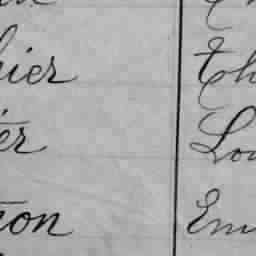 hier Th
er Lou
ton Em